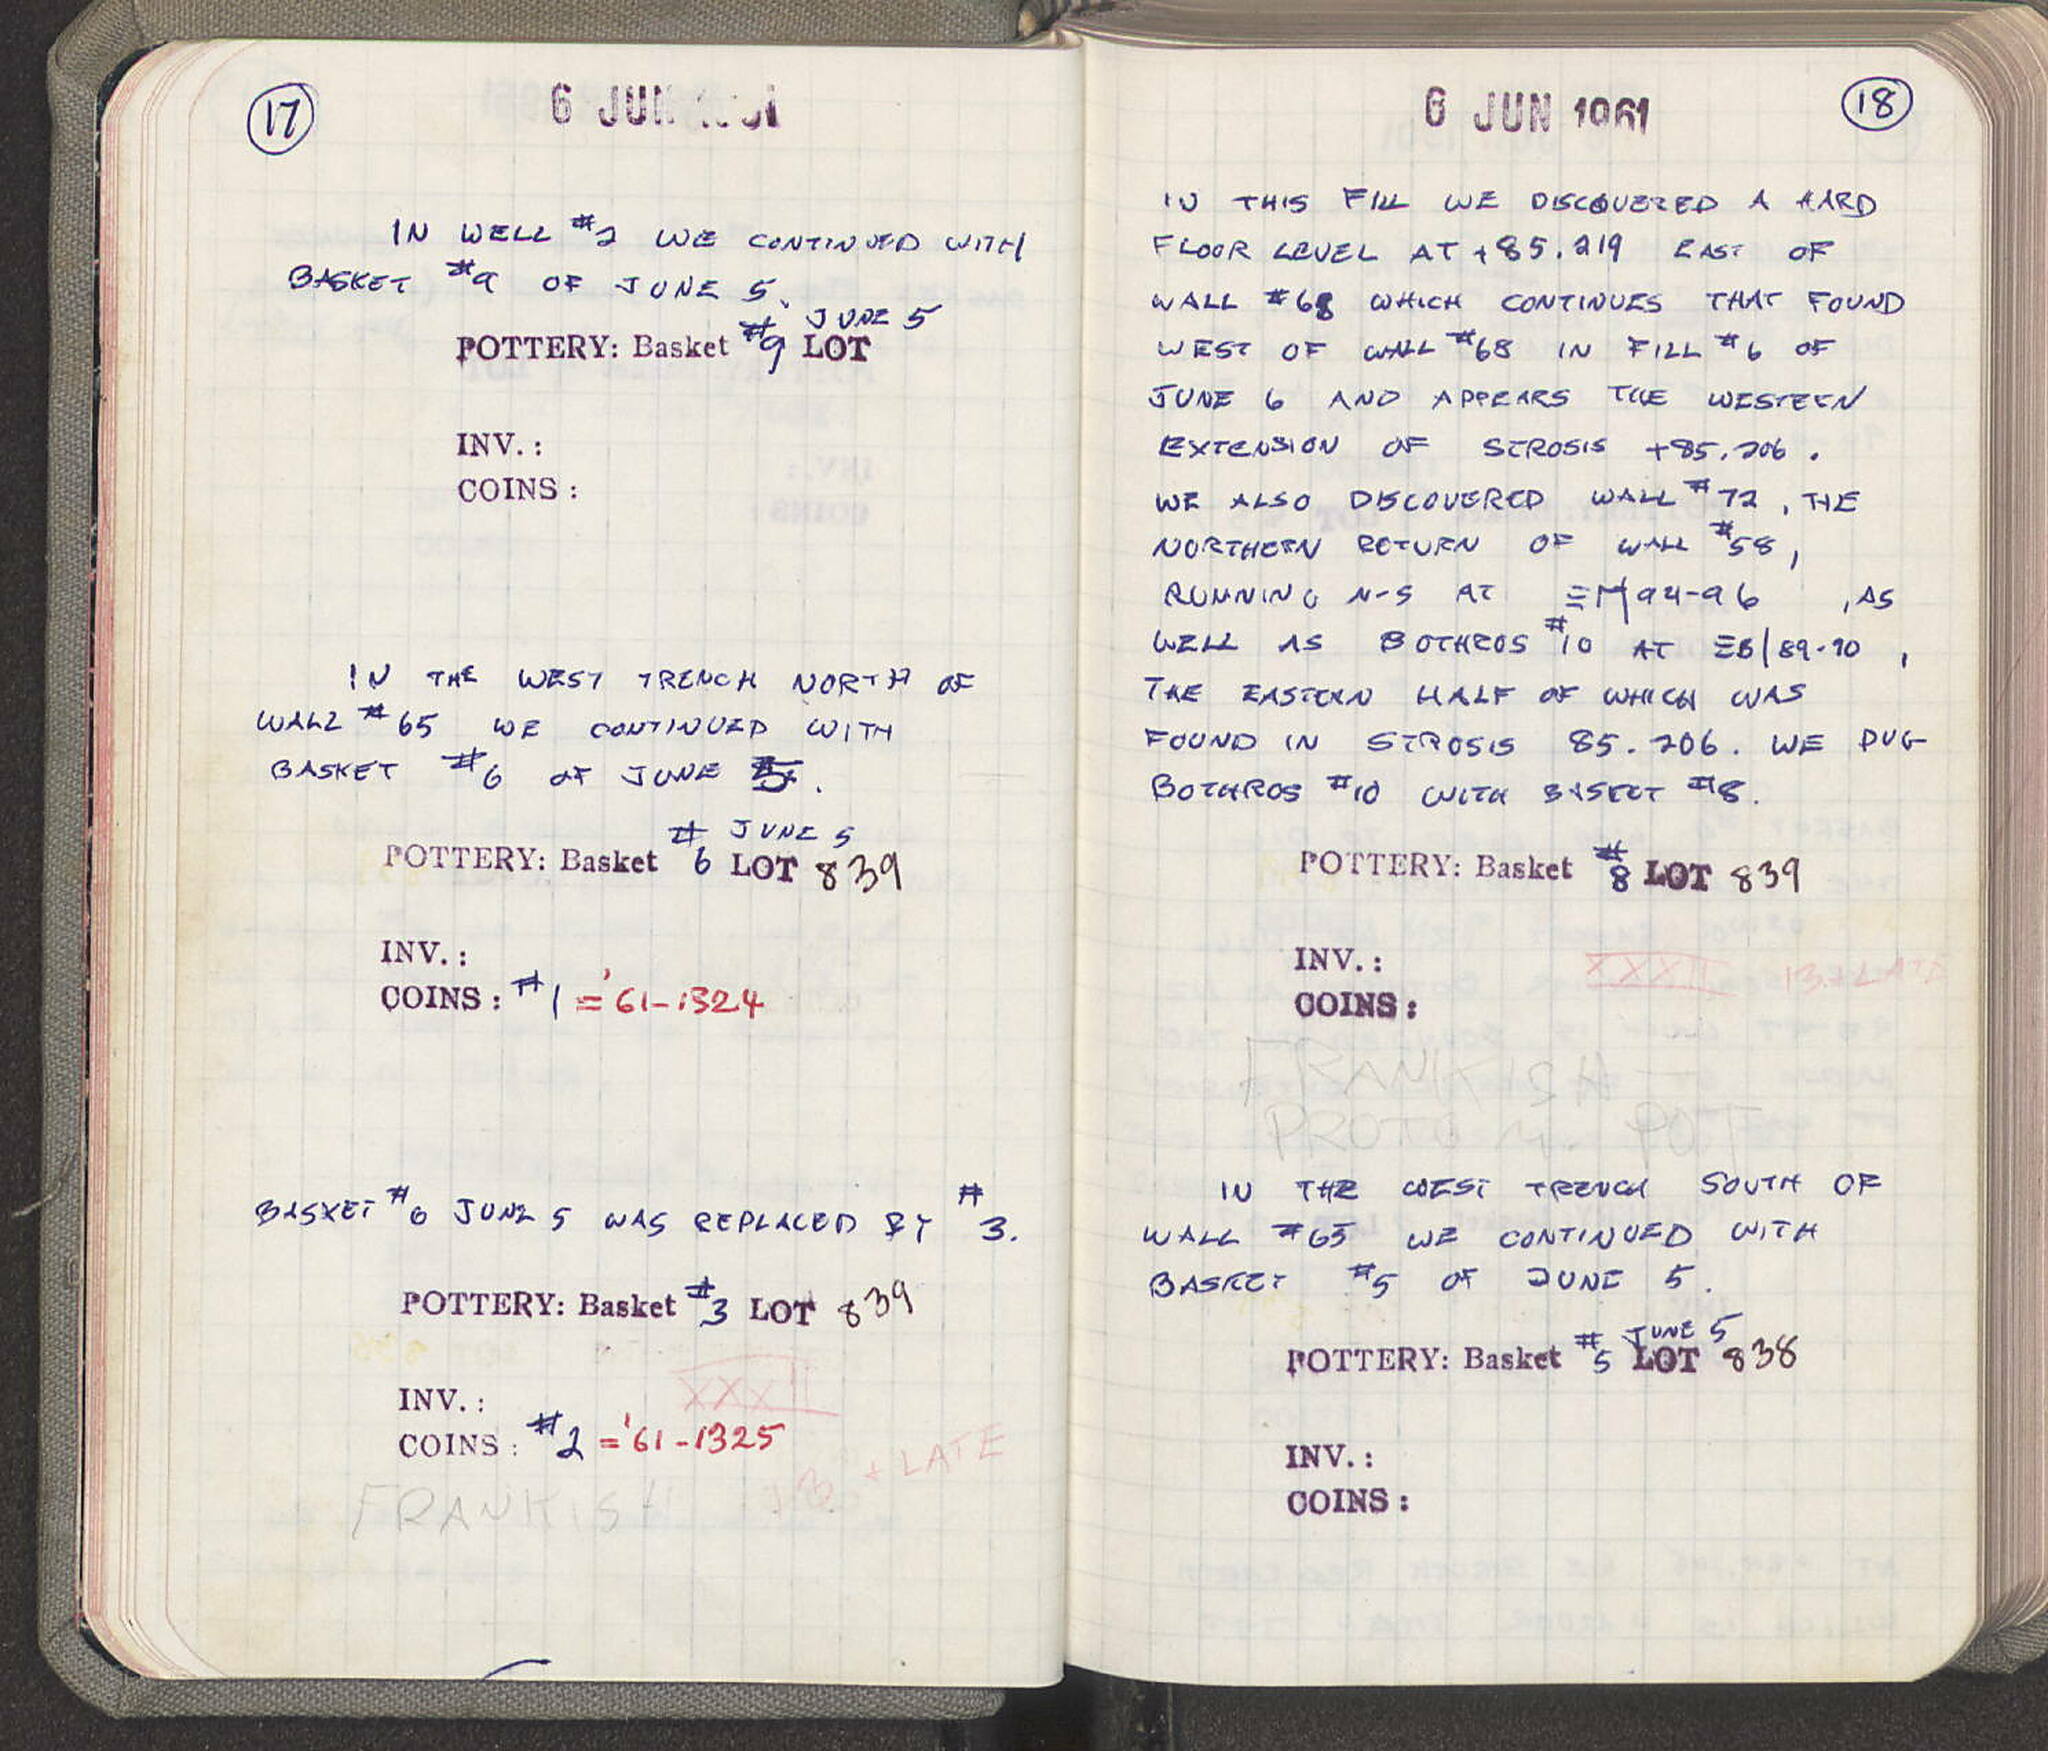 17
6 JUN
IN WELL #2 WE CONTINUED WITH
BASKET #9 OF JUNE 5.
JUNE 5
POTTERY: Basket #9 LOT
INV.:
COINS:
IN THE WEST TRENCH NORTH OF
WALL #65 WE CONTINUED WITH
BASKET #6 OF JUNE 5.
JUNE 5
POTTERY: Basket #6 LOT 839
INV.:
COINS: #1 = '61-1324
BASKET #6 JUNE 5 WAS REPLACED BY #3.
POTTERY: Basket #3 LOT 839
INV.:
XXXII
COINS: #2 = '61-1325
+ LATE
FRANKISH
6 JUN 1961
18
IN THIS FILL WE DISCOVERED A HARD
FLOOR LEVEL AT +85.219 EAST OF
WALL #68 WHICH CONTINUES THAT FOUND
WEST OF WALL #68 IN FILL #6 OF
JUNE 6 AND APPEARS THE WESTERN
EXTENSION OF STROSIS +85.206.
WE ALSO DISCOVERED WALL #72, THE
NORTHERN RETURN OF WALL #58,
RUNNING N-S AT 94-96, AS
WELL AS BOTHROS #10 AT ΞB/89-90,
THE EASTERN HALF OF WHICH WAS
FOUND IN STROSIS 85.206. WE DUG
BOTHROS #10 WITH BASKET #8.
POTTERY: Basket #8 LOT 839
INV.:
XXXII LATE
COINS:
FRANKISH
PROTO M. POT
IN THE WEST TRENCH SOUTH OF
WALL #65 WE CONTINUED WITH
BASKET #5 OF JUNE 5.
JUNE 5
POTTERY: Basket #5 LOT 838
INV.:
COINS: